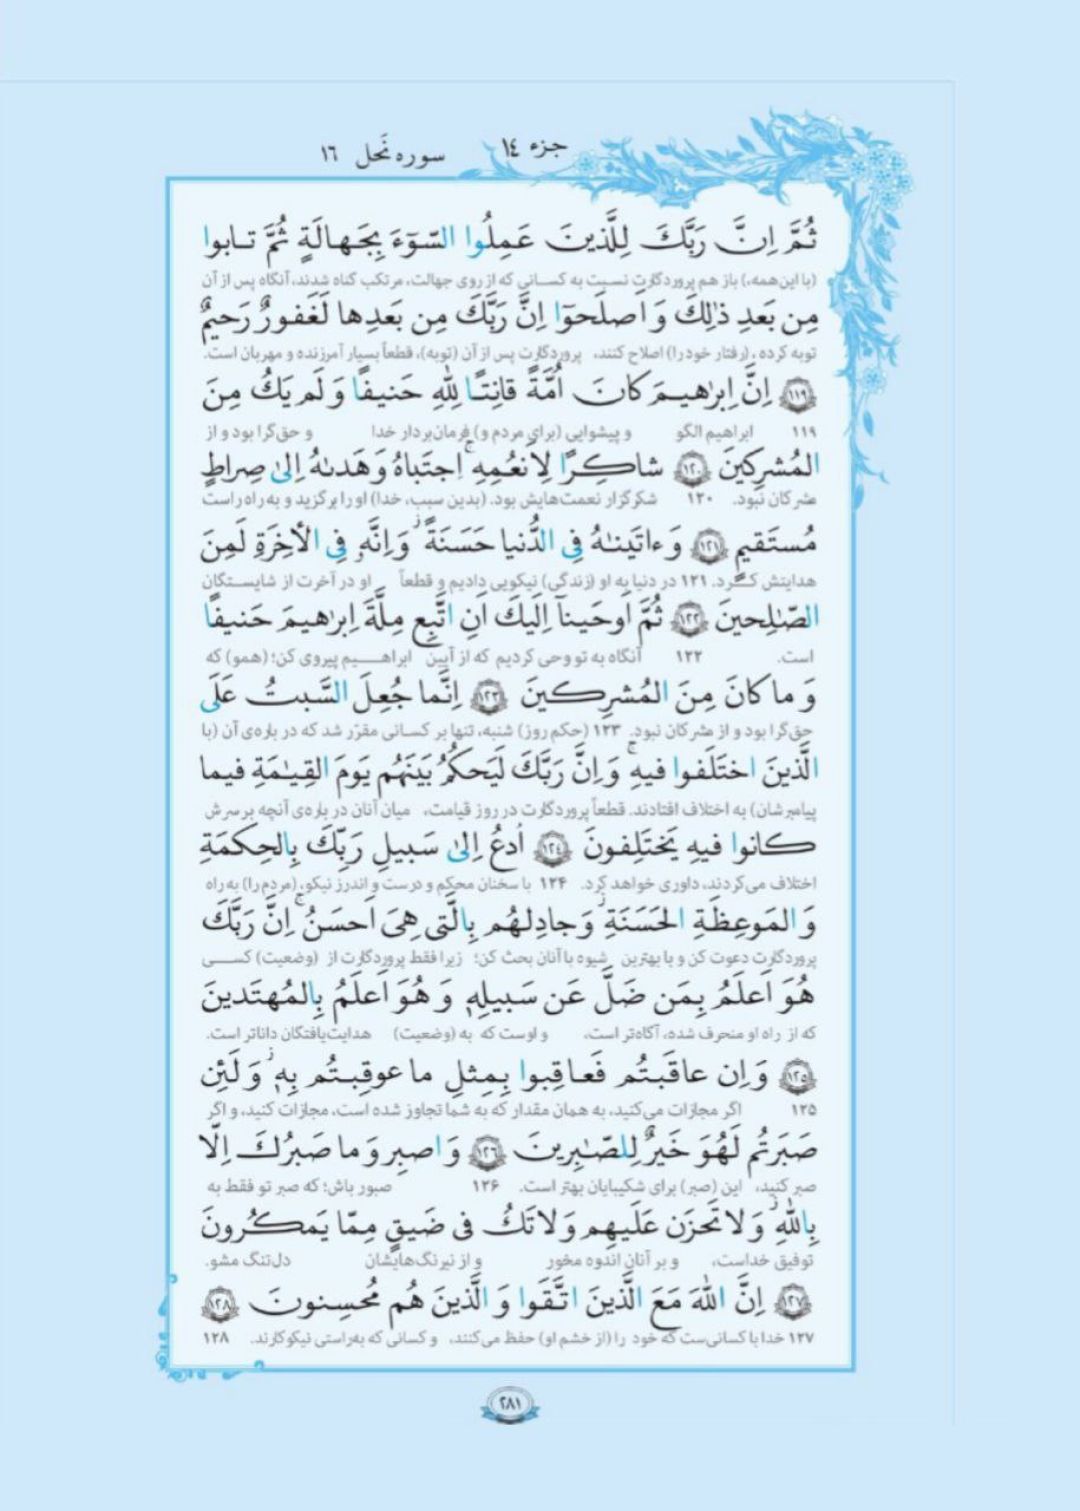 جزء ١٤
سوره نَحل ١٦
ثُمَّ اِنَّ رَبَّكَ لِلَّذينَ عَمِلُوا السّوٓءَ بِجَهالَةٍ ثُمَّ تابوا
(با این‌همه،) باز هم پروردگارت نسبت به کسانی که از روی جهالت، مرتکب گناه شدند، آنگاه پس از آن
مِن بَعدِ ذٰلِكَ وَ اَصلَحوٓا اِنَّ رَبَّكَ مِن بَعدِها لَغَفورٌ رَحيمٌ
توبه کرده، (رفتار خود را) اصلاح کنند، پروردگارت پس از آن (توبه)، قطعاً بسیار آمرزنده و مهربان است.
﴿١١٩﴾ اِنَّ اِبرٰهيمَ كانَ اُمَّةً قانِتًا لِلّٰهِ حَنيفًا وَ لَم يَكُ مِنَ
۱۱۹ ابراهیم الگو و پیشوایی (برای مردم و) فرمان‌بردار خدا و حق‌گرا بود و از
المُشرِكينَ ﴿١٢٠﴾ شاكِرًا لِاَنعُمِهِ ۚ اِجتَباهُ وَ هَدىٰهُ اِلىٰ صِراطٍ
مشرکان نبود. ۱۲۰ شکرگزار نعمت‌هایش بود. (بدین سبب، خدا) او را برگزید و به راه راست
مُستَقيمٍ ﴿١٢١﴾ وَ ءاتَينٰهُ فِى الدُّنيا حَسَنَةً ۖ وَ اِنَّهٗ فِى الأخِرَةِ لَمِنَ
هدایتش کرد. ۱۲۱ در دنیا به او (زندگی) نیکویی دادیم و قطعاً او در آخرت از شایستگان
الصّٰلِحينَ ﴿١٢٢﴾ ثُمَّ اَوحَينآ اِلَيكَ اَنِ اتَّبِع مِلَّةَ اِبرٰهيمَ حَنيفًا
است. ۱۲۲ آنگاه به تو وحی کردیم که از آیین ابراهیم پیروی کن؛ (همو) که
وَ ما كانَ مِنَ المُشرِكينَ ﴿١٢٣﴾ اِنَّما جُعِلَ السَّبتُ عَلَى
حق‌گرا بود و از مشرکان نبود. ۱۲۳ (حکم روز) شنبه، تنها بر کسانی مقرّر شد که در باره‌ی آن (با
الَّذينَ اختَلَفوا فيهِ ۚ وَ اِنَّ رَبَّكَ لَيَحكُمُ بَينَهُم يَومَ القِيٰمَةِ فيما
پیامبرشان) به اختلاف افتادند. قطعاً پروردگارت در روز قیامت، میان آنان در باره‌ی آنچه بر سرش
كانوا فيهِ يَختَلِفونَ ﴿١٢٤﴾ اُدعُ اِلىٰ سَبيلِ رَبِّكَ بِالحِكمَةِ
اختلاف می‌کردند، داوری خواهد کرد. ۱۲۴ با سخنان محکم و درست و اندرز نیکو، (مردم را) به راه
وَ المَوعِظَةِ الحَسَنَةِ ۖ وَ جادِلهُم بِالَّتى هِىَ اَحسَنُ ۚ اِنَّ رَبَّكَ
پروردگارت دعوت کن و با بهترین شیوه با آنان بحث کن؛ زیرا فقط پروردگارت از (وضعیت) کسی
هُوَ اَعلَمُ بِمَن ضَلَّ عَن سَبيلِهٖ وَ هُوَ اَعلَمُ بِالمُهتَدينَ
که از راه او منحرف شده، آگاه‌تر است، و اوست که به (وضعیت) هدایت‌یافتگان داناتر است.
﴿١٢٥﴾ وَ اِن عاقَبتُم فَعاقِبوا بِمِثلِ ما عوقِبتُم بِهٖ ۖ وَ لَئِن
۱۲۵ اگر مجازات می‌کنید، به همان مقدار که به شما تجاوز شده است، مجازات کنید، و اگر
صَبَرتُم لَهُوَ خَيرٌ لِلصّٰبِرينَ ﴿١٢٦﴾ وَ اصبِر وَ ما صَبرُكَ اِلّا
صبر کنید، این (صبر) برای شکیبایان بهتر است. ۱۲۶ صبور باش؛ که صبر تو فقط به
بِاللّٰهِ ۚ وَ لا تَحزَن عَلَيهِم وَ لا تَكُ فى ضَيقٍ مِمّا يَمكُرونَ
توفیق خداست، و بر آنان اندوه مخور و از نیرنگ‌هایشان دل‌تنگ مشو.
﴿١٢٧﴾ اِنَّ اللّٰهَ مَعَ الَّذينَ اتَّقَوا وَ الَّذينَ هُم مُحسِنونَ ﴿١٢٨﴾
۱۲۷ خدا با کسانی‌ست که خود را (از خشم او) حفظ می‌کنند، و کسانی که به‌راستی نیکوکارند. ۱۲۸
٢٨١